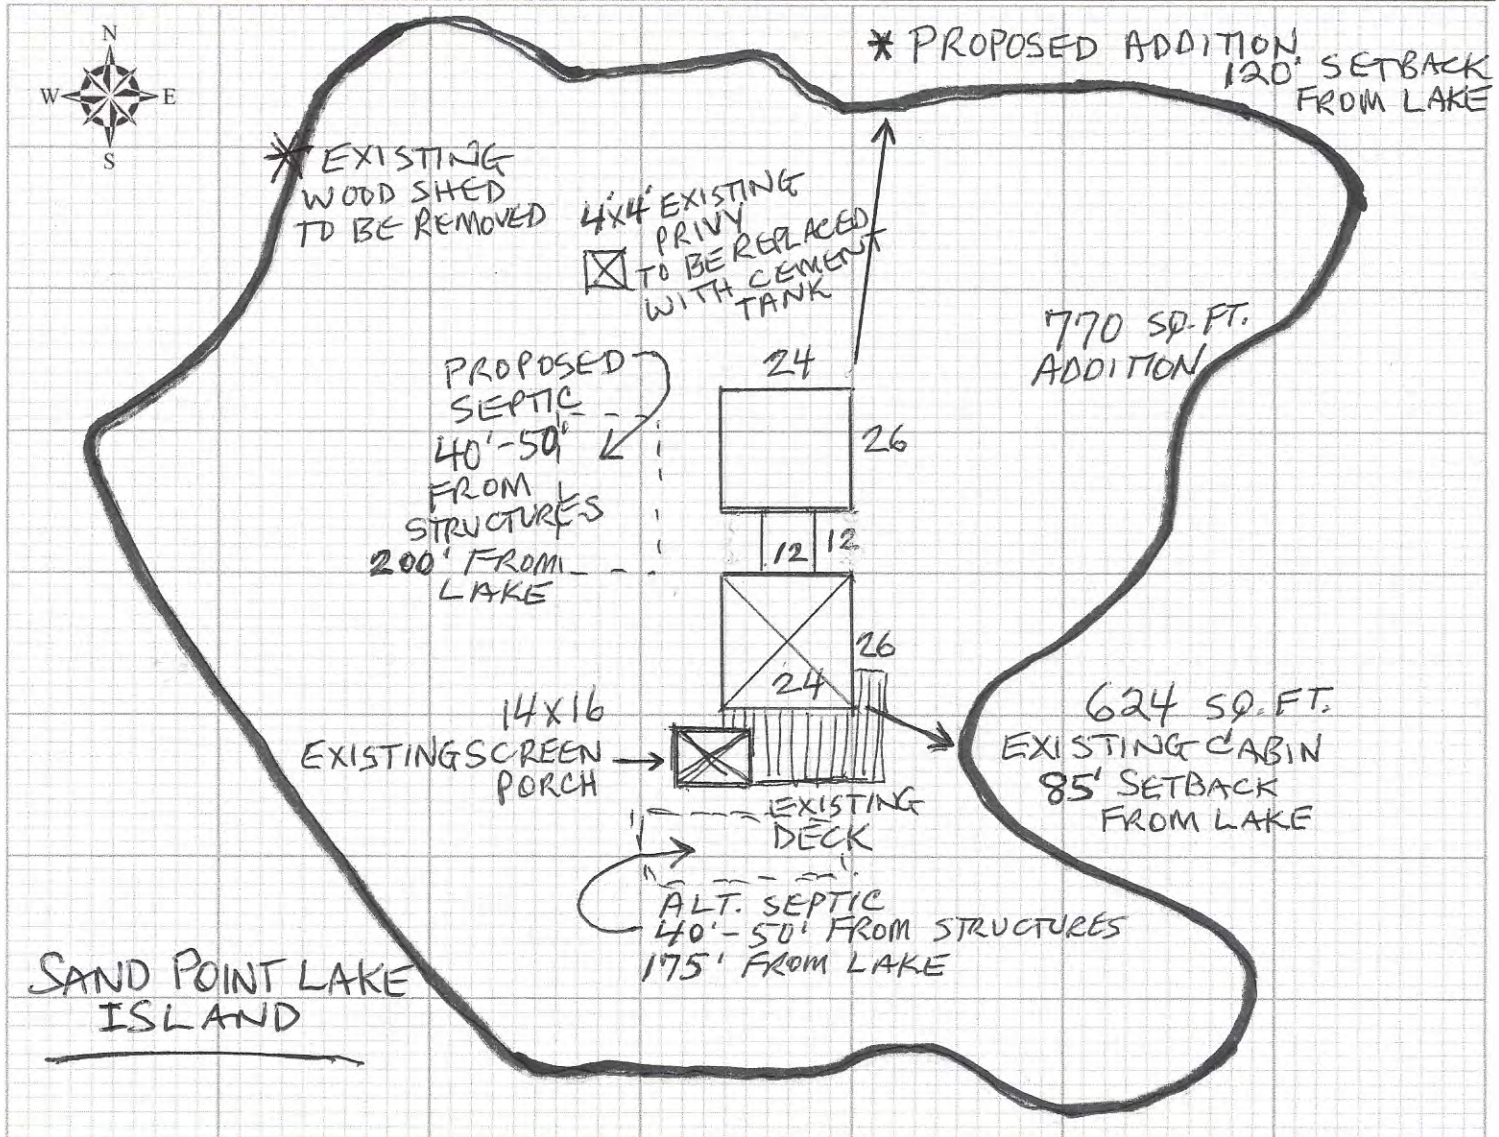 N
W E
S
* PROPOSED ADDITION
120' SETBACK
FROM LAKE
* EXISTING
WOOD SHED
TO BE REMOVED
4'x4' EXISTING
PRIVY
TO BE REPLACED
WITH CEMENT
TANK
770 SQ. FT.
ADDITION
PROPOSED
SEPTIC
40'-50'
FROM
STRUCTURES
200' FROM
LAKE
24
26
12 12
26
24
14X16
EXISTING SCREEN
PORCH
624 SQ. FT.
EXISTING CABIN
85' SETBACK
FROM LAKE
EXISTING
DECK
ALT. SEPTIC
40'-50' FROM STRUCTURES
175' FROM LAKE
SAND POINT LAKE
ISLAND